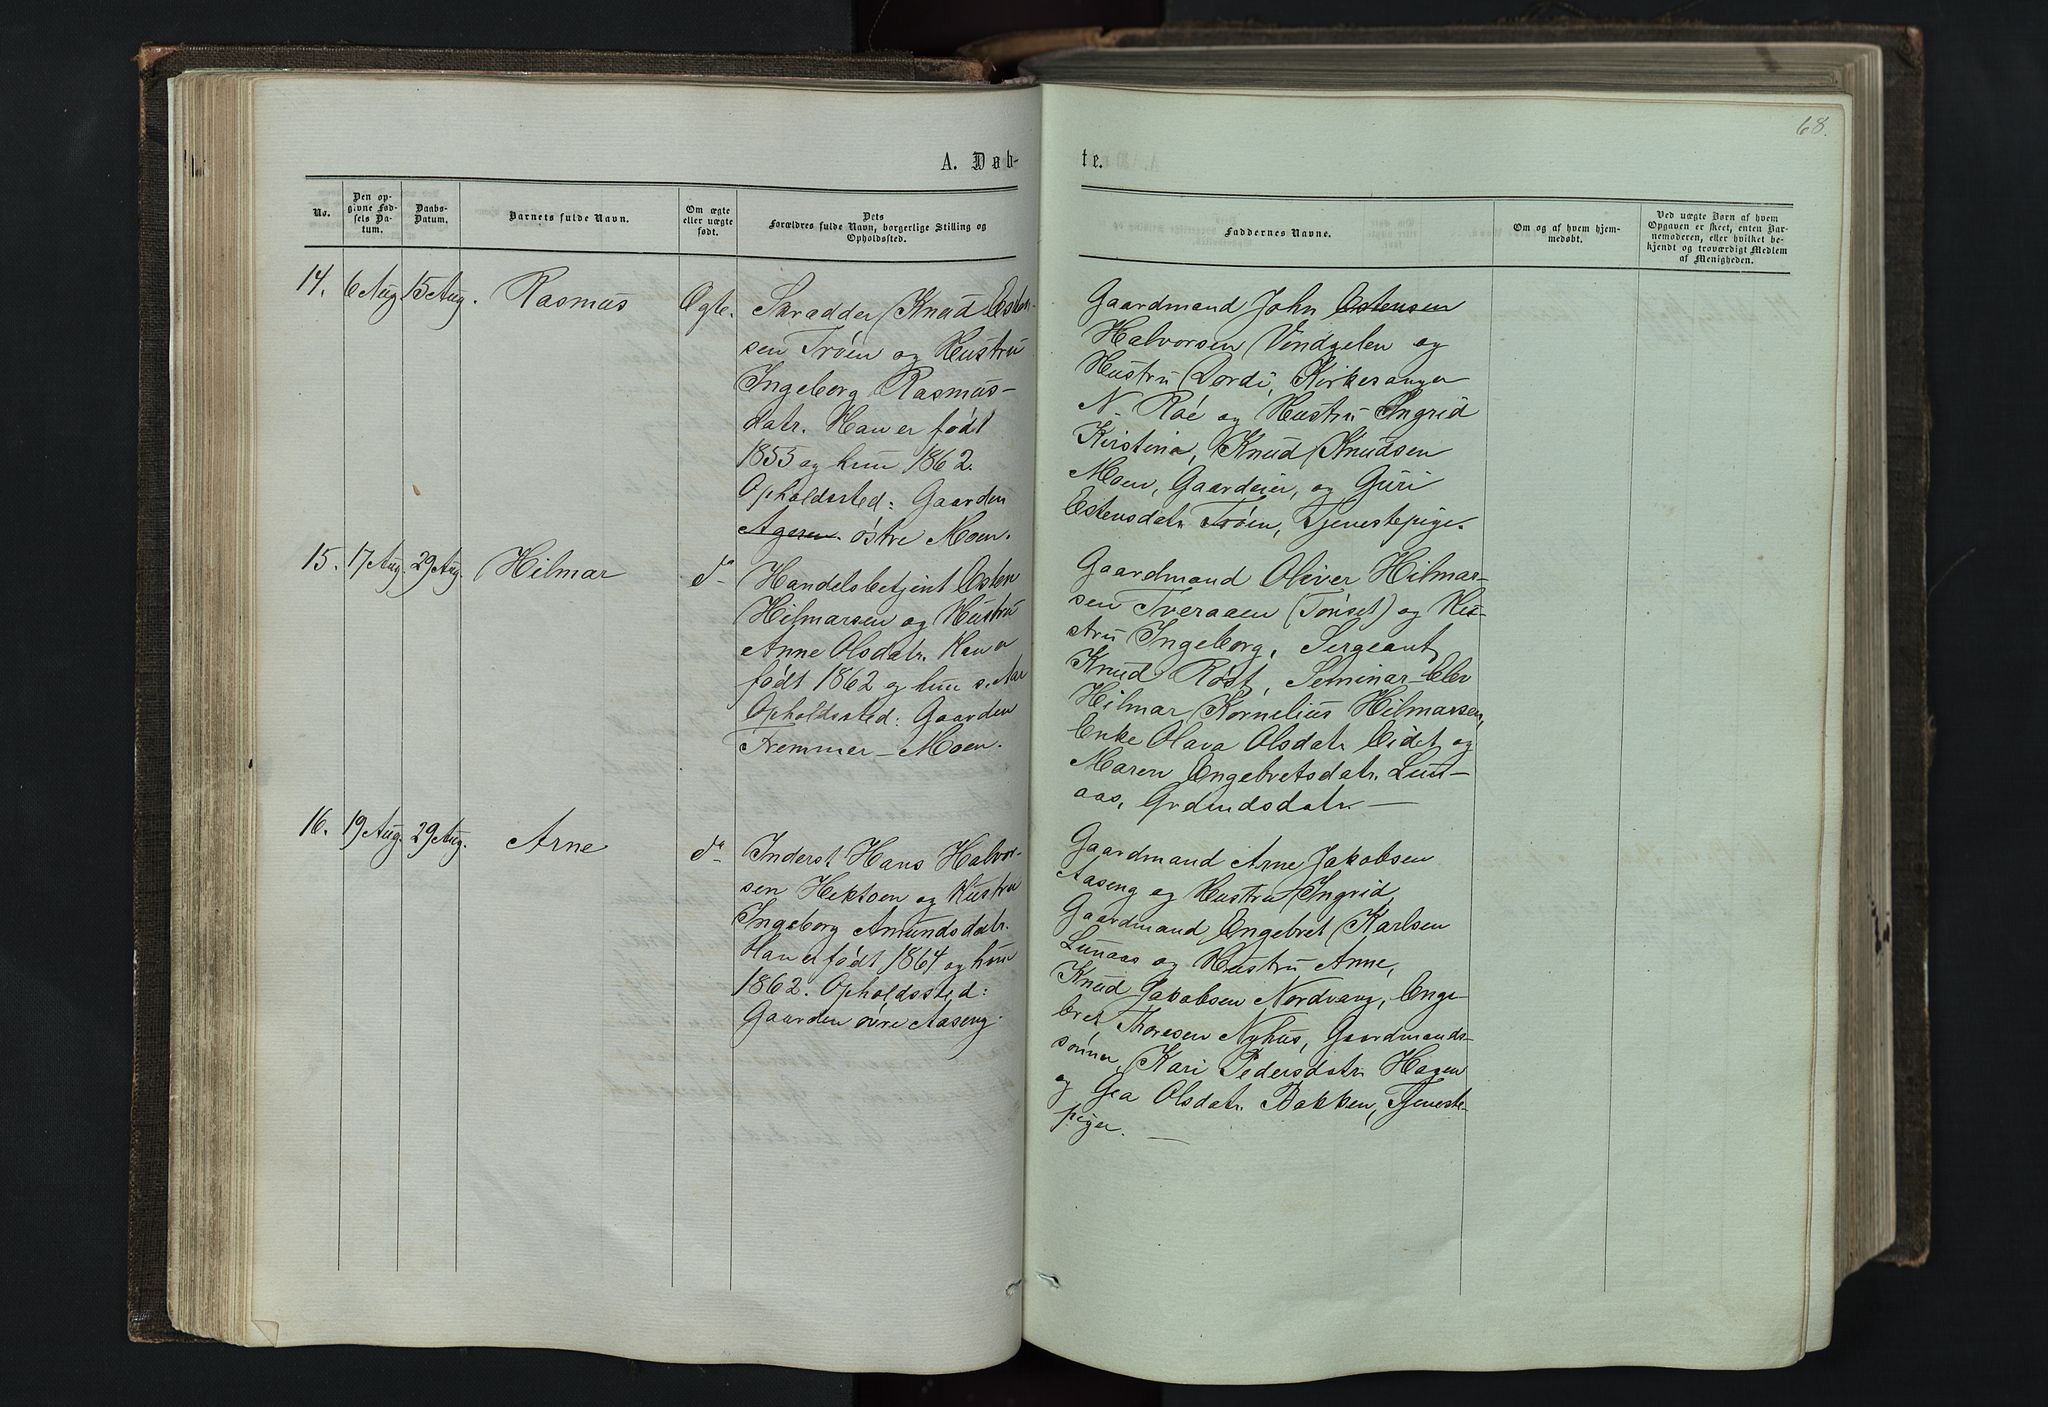 68.
A. Døb-
te.
No.
Den op-
givne Fød-
sels Da-
tum.
Daabs-
Datum.
Barnets fulde Navn.
Om ægte
eller uægte
født.
Dets
Forældres fulde Navn, borgerlige Stilling og
Opholdssted.
Faddernes Navne.
Om og af hvem hjem-
medøbt.
Ved uægte Børn af hvem
Opgaven er skeet, enten Bar-
nemoderen, eller hvilket be-
kjendt og troværdigt Medlem
af Menigheden.
14. 6 Aug. 15 Aug. Rasmus Ægte.
Skrædder Knud Østen-
sen Trøen og Hustru
Ingeborg Rasmus-
datr. Han er født
1853 og hun 1862.
Opholdssted: Gaarden
Ageren. østre Moen.
Gaardmand John Estensen
Halvorsen Vingelen og
Hustru Dordi, Kirkesanger
N. Roé og Hustru Ingrid
Kirstina, Knud Knudsen
Moen, Gaardeier, og Guri
Estensdatr. Trøen, Tjenestepige.
15. 17 Aug. 29 Aug. Hilmar do
Handelsbetjent Esten
Hilmarsen og Hustru
Anne Olsdatr. Han er
født 1862 og hun s. Aar
Opholdssted: Gaarden
Fremmer-Moen.
Gaardmand Oliver Hilmar-
sen Tveraaen (Tønset) og Hu-
stru Ingeborg, Sergeant
Knud Røst, Seminar-Elev
Hilmar Kornelius Hilmarsen,
Enke Olava Olsdatr. Eidet og
Maren Engebretsdatr. Lun-
aas, Grdmdsdatr.
16. 19 Aug. 29 Aug. Arne do
Inderst Hans Halvor-
sen Hektoen og Hustru
Ingeborg Amundsdatr.
Han er født 1864 og hun
1862. Opholdssted:
Gaarden øvre Aaseng.
Gaardmand Arne Jakobsen
Aaseng og Hustru Ingrid,
Gaardmand Engebret Karlsen
Lunaas og Hustru Anne,
Knud Jakobsen Nordvang, Enge-
bret Thoresen Nyhus, Gaardmands-
sønner, Kari Pedersdatr. Hagen
og Gea Olsdatr. Bakken, Tjeneste-
piger.